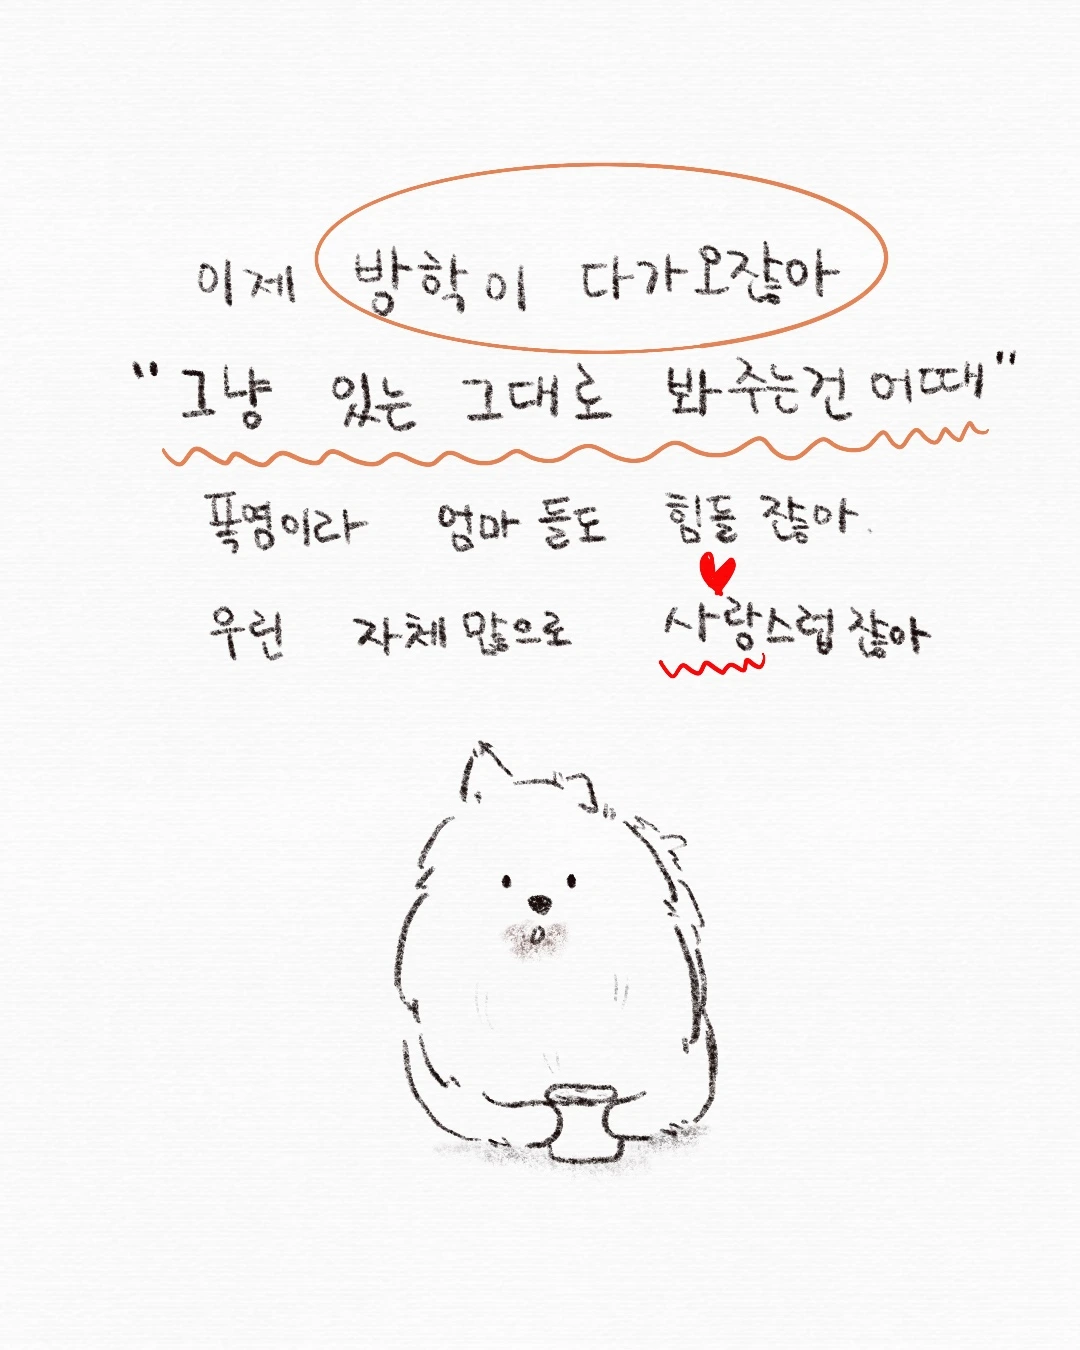 이제 방학이 다가오잖아
"그냥 있는 그대로 봐주는건 어때"
폭염이라 엄마 들도 힘들 잖아.
우린 자체 만으로 사랑스럽잖아